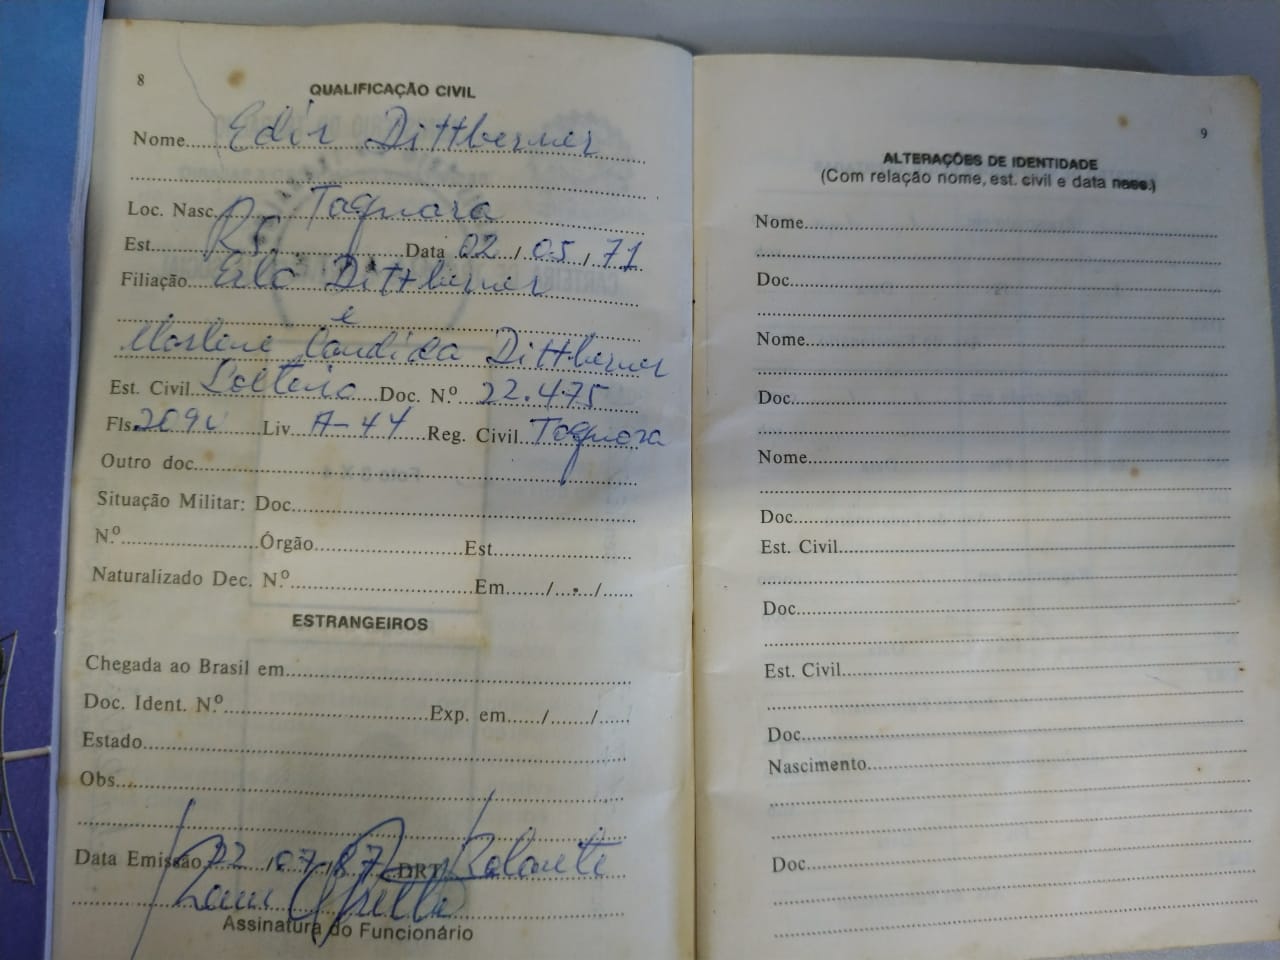 8
QUALIFICAÇÃO CIVIL
Nome Edir Dittberner
Loc. Nasc. Taquara
Est. RS. Data 02 / 05 / 71
Filiação Dittberner
e
Marlene Candida Dittberner
Est. Civil Solteiro Doc. N.º 22.475
Fls. 209v Liv. A-44 Reg. Civil Taquara
Outro doc.
Situação Militar: Doc.
N.º Órgão Est.
Naturalizado Dec. N.º Em / /
ESTRANGEIROS
Chegada ao Brasil em
Doc. Ident. N.º Exp. em / /
Estado
Obs.
Data Emissão 22 / 07 / 87 DRT Rolante
Assinatura do Funcionário
9
ALTERAÇÕES DE IDENTIDADE
(Com relação nome, est. civil e data nasc.)
Nome
Doc.
Nome
Doc.
Nome
Doc.
Est. Civil
Doc.
Est. Civil
Doc.
Nascimento
Doc.